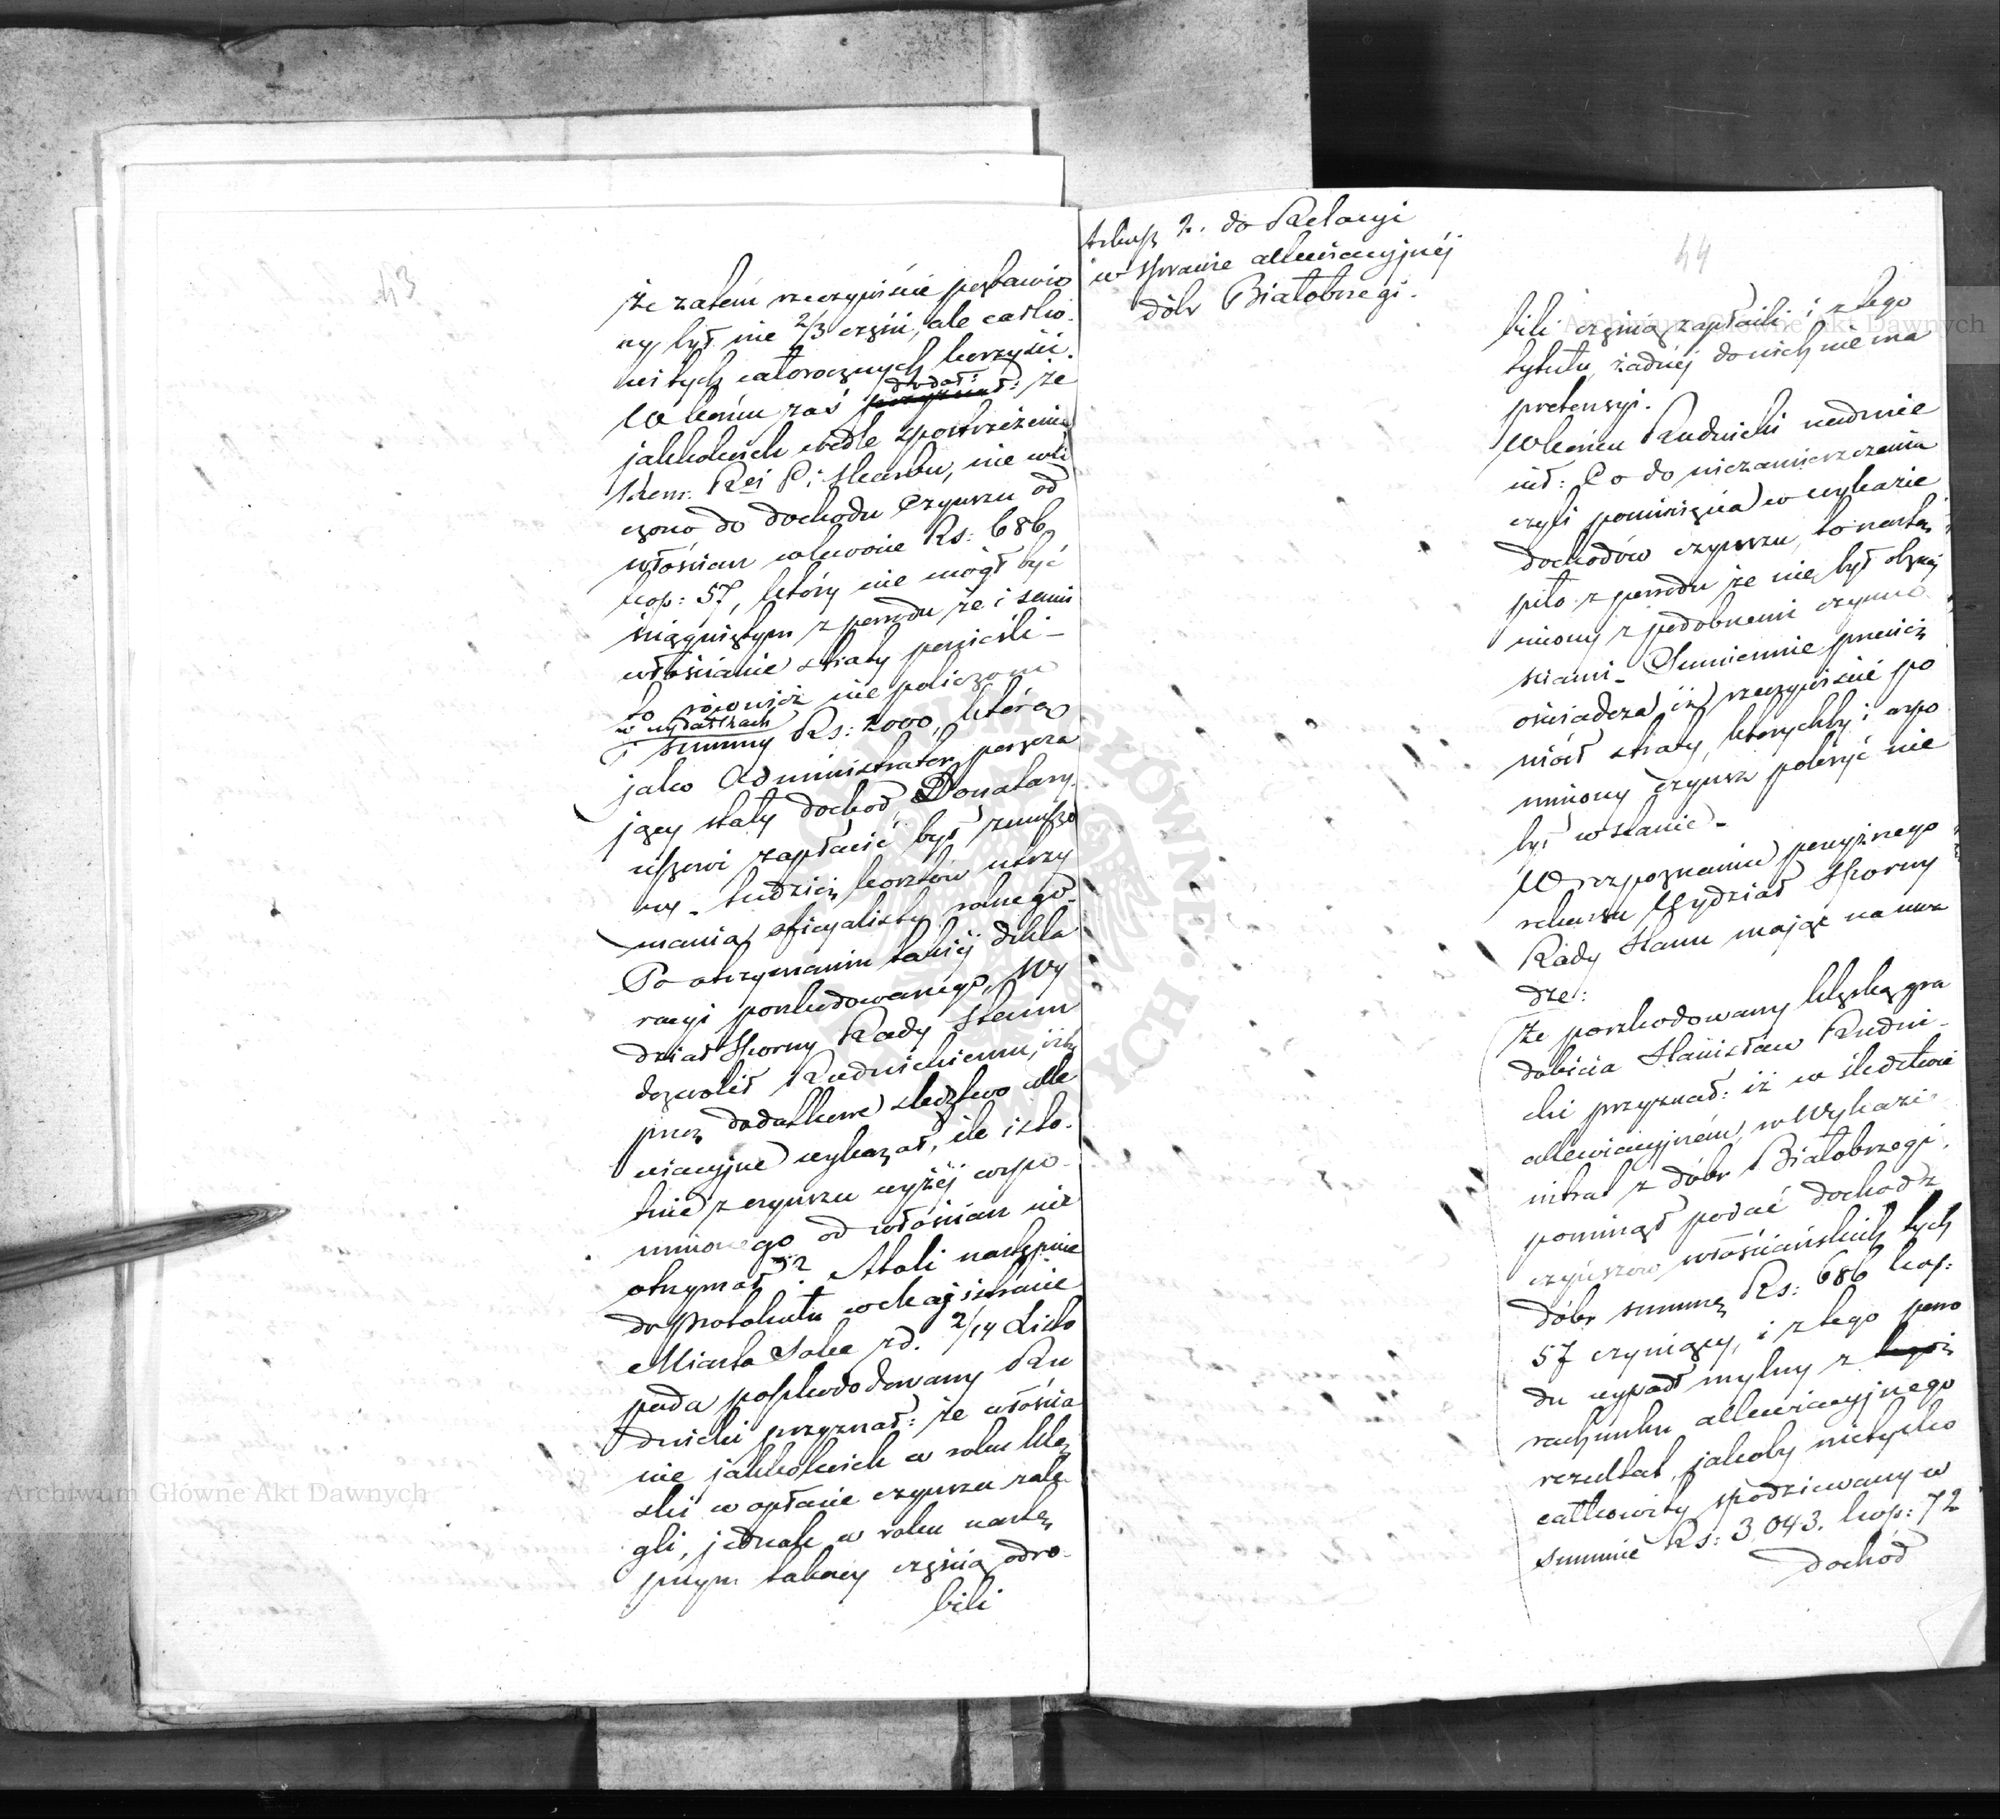 43
że zatem rzeczywiście pozbawio
ny był nie 2/3 części, ale całko
witych całorocznych korzyści.
W końcu zaś przyznał: dodał: że
jakkolwiek wedle spostrzeżenia
Kom: Rej P: i Skarbu, nie wli
czono do dochodu czynszu od
włościan w kwocie Rs: 686
kop: 57, który nie mógł być
ściągniętym z powodu że i sami
włościanie straty ponieśli –
to również nie policzono
w wydatkach
i summy Rs: 2000, którą
jako Administrator poręcza
jący stały dochód, Donatary
uszowi zapłacić był zmuszo
ny – tudzież kosztów utrzy
mania oficyalisty rolnego.
Po otrzymaniu takiej dekla
racyi poszkodowanego, Wy
dział Sporny Rady Stanu
dozwolił Rudnickiemu, iżby
przez dodatkowe śledztwo alle
wiacyjne wykazał, ile isto
tnie z czynszu wyżej wspo
mnionego od włościan nie
otrzymał? Atoli następnie
do Protokułu w Magistracie
Miasta zd. 2/14 Listo
pada poszkodowany Ru
dnicki przyznał: że włościa
nie jakkolwiek w roku klę
ski w opłacie czynszu zale
gli, jednak w roku nastę
pnym takowy częścią odro
bili
Arkusz 2. do Relacyi
w sprawie allewiacyjnéj
dóbr Białobrzegi.
44
bili częścią zapłacili i z tego
tytułu, żadnéj do nich nie ma
pretensyi.
W końcu Rudnicki nadmie
nił: Co do niezamieszczenia
czyli pominięcia w wykazie
dochodów czynszu, to nastą
piło z powodu że nie był obznaj
miony z podobnemi czynno
ściami – Sumiennie przecież
oświadcza iż rzeczywiście po
niósł straty, którychby i wspo
mniony czynsz pokryć nie
był w stanie –
W rozpoznaniu powyższego
rekursu Wydział Sporny
Rady Stanu mając na uwa
dze:
Że poszkodowany klęską gra
dobicia Stanisław Rudni
cki przyznał: iż w śledztwie
allewiacyjném, w Wykazie
intrat z dóbr Białobrzegi,
pominął podać dochód z
czynszów włościańskich tych
dóbr summę Rs: 686 kop:
57 czyniący, i z tego powo
du wypadł mylny z
rachunku allewiacyjnego
rezultat, jakoby nietylko
całkowity spodziewany w
summie Rs: 3043. kop: 72
dochód
Archiwum Główne Akt Dawnych
Archiwum Główne Akt Dawnych